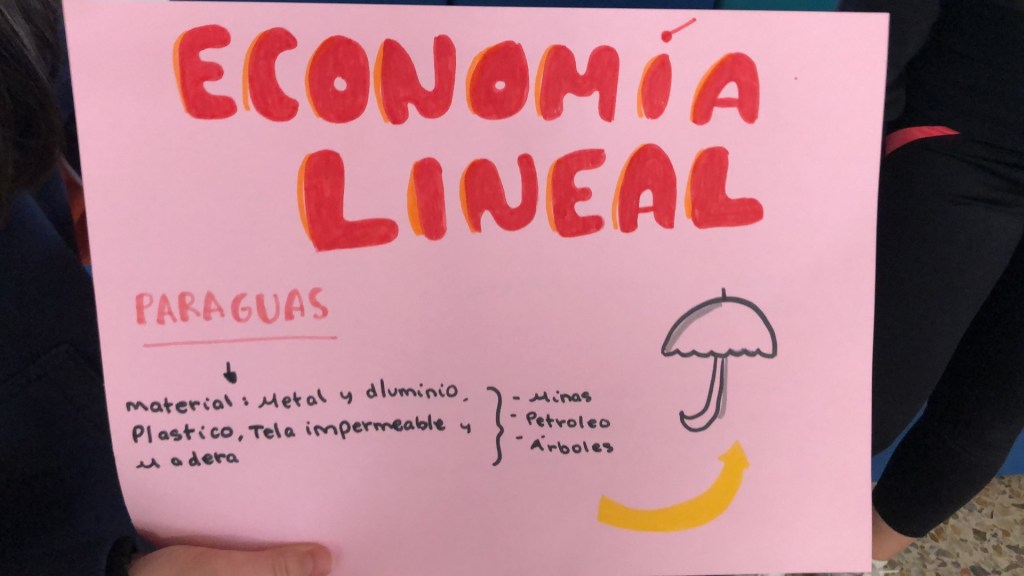 ECONOMÍA
LINEAL
PARAGUAS
Material: Metal y aluminio,
Plastico, Tela impermeable y
Madera
- Minas
- Petroleo
- Árboles